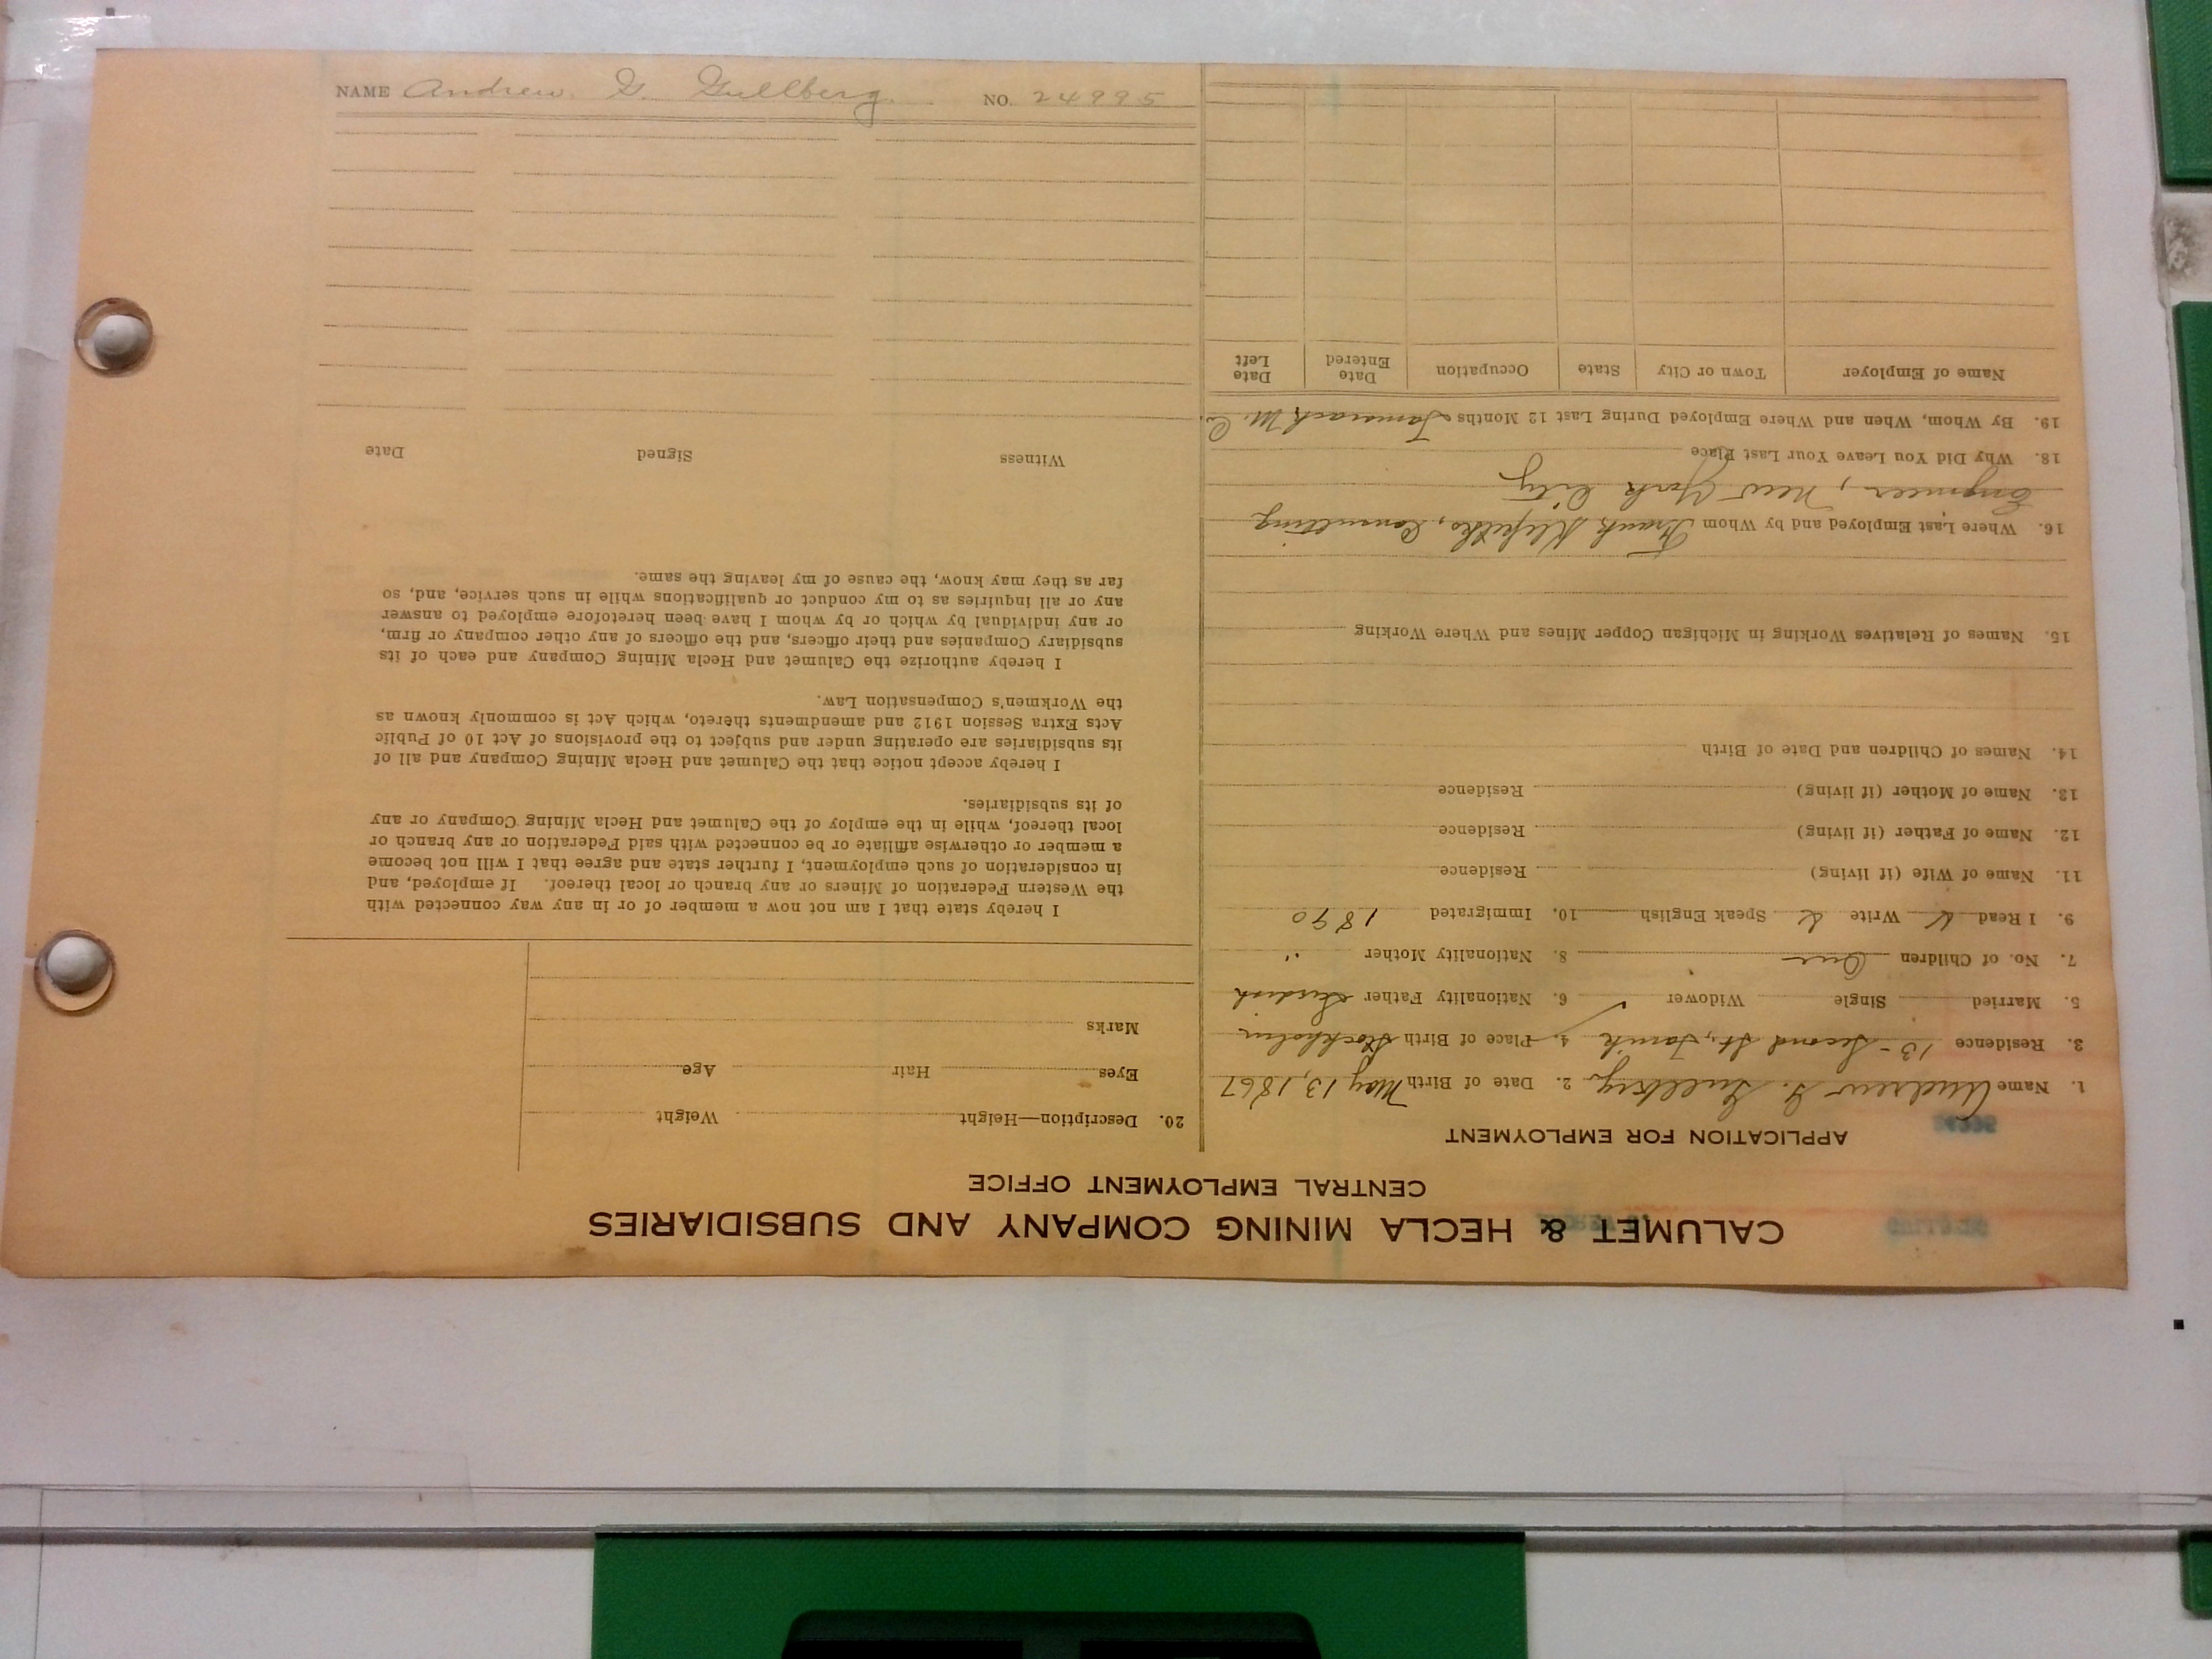 CALUMET & HECLA MINING COMPANY AND SUBSIDIARIES
CENTRAL EMPLOYMENT OFFICE
APPLICATION FOR EMPLOYMENT
1. Name Andrew G. Gullberg 2. Date of Birth May 13, 1867
3. Residence 13 - Second St., Tamk 4. Place of Birth Stockholm
5. Married Single Widower ✓ 6. Nationality Father Swedish
7. No. of Children One 8. Nationality Mother "
9. I Read Write Speak English 10. Immigrated 1890
11. Name of Wife (if living) Residence
12. Name of Father (if living) Residence
13. Name of Mother (if living) Residence
14. Names of Children and Date of Birth
15. Names of Relatives Working in Michigan Copper Mines and Where Working
16. Where Last Employed and by Whom Frank Klepetko, Consulting
Engineer, New York City
18. Why Did You Leave Your Last Place
19. By Whom, When and Where Employed During Last 12 Months Tamarack M. Co.
Name of Employer Town or City State Occupation Date Entered Date Left
20. Description—Height Weight
Eyes Hair Age
Marks
I hereby state that I am not now a member of or in any way connected with
the Western Federation of Miners or any branch or local thereof. If employed, and
in consideration of such employment, I further state and agree that I will not become
a member or otherwise affiliate or be connected with said Federation or any branch or
local thereof, while in the employ of the Calumet and Hecla Mining Company or any
of its subsidiaries.
I hereby accept notice that the Calumet and Hecla Mining Company and all of
its subsidiaries are operating under and subject to the provisions of Act 10 of Public
Acts Extra Session 1912 and amendments thereto, which Act is commonly known as
the Workmen's Compensation Law.
I hereby authorize the Calumet and Hecla Mining Company and each of its
subsidiary Companies and their officers, and the officers of any other company or firm,
or any individual by which or by whom I have been heretofore employed to answer
any or all inquiries as to my conduct or qualifications while in such service, and, so
far as they may know, the cause of my leaving the same.
Witness Signed Date
NAME Andrew G. Gullberg NO. 24995